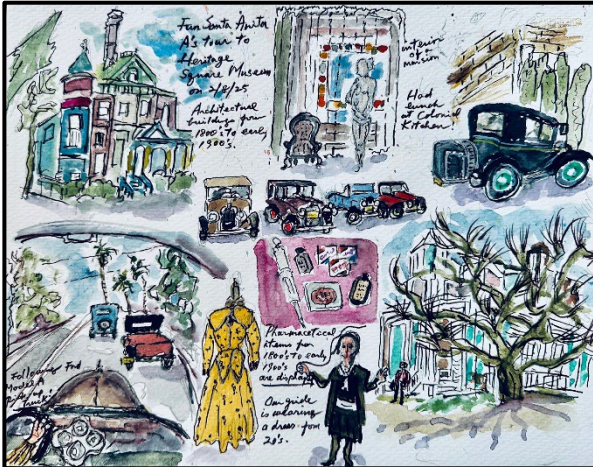 Fun Santa Anita
A's tour to
Heritage
Square Museum
on 2/8/25
Architectural
buildings from
1800's to early
1900's.
interior
of a
mansion
Had
lunch
at Colonial
Kitchen
Following Ford
Model A
Pharmacetical
items from
1800's to early
1900's
are displayed
Our guide
is wearing
a dress from
20's.